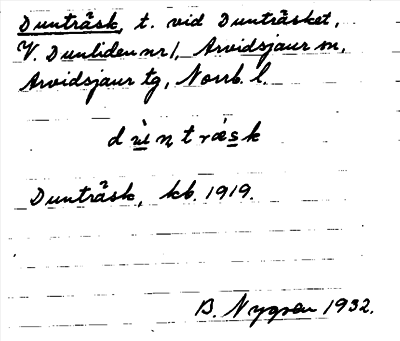 Dunträsk, t. vid Dunträsket,
V. Dunliden nr 1, Arvidsjaur sn,
Arvidsjaur tg, Norrb. l.
Dunträsk, kb. 1919.
B. Nygren 1932.